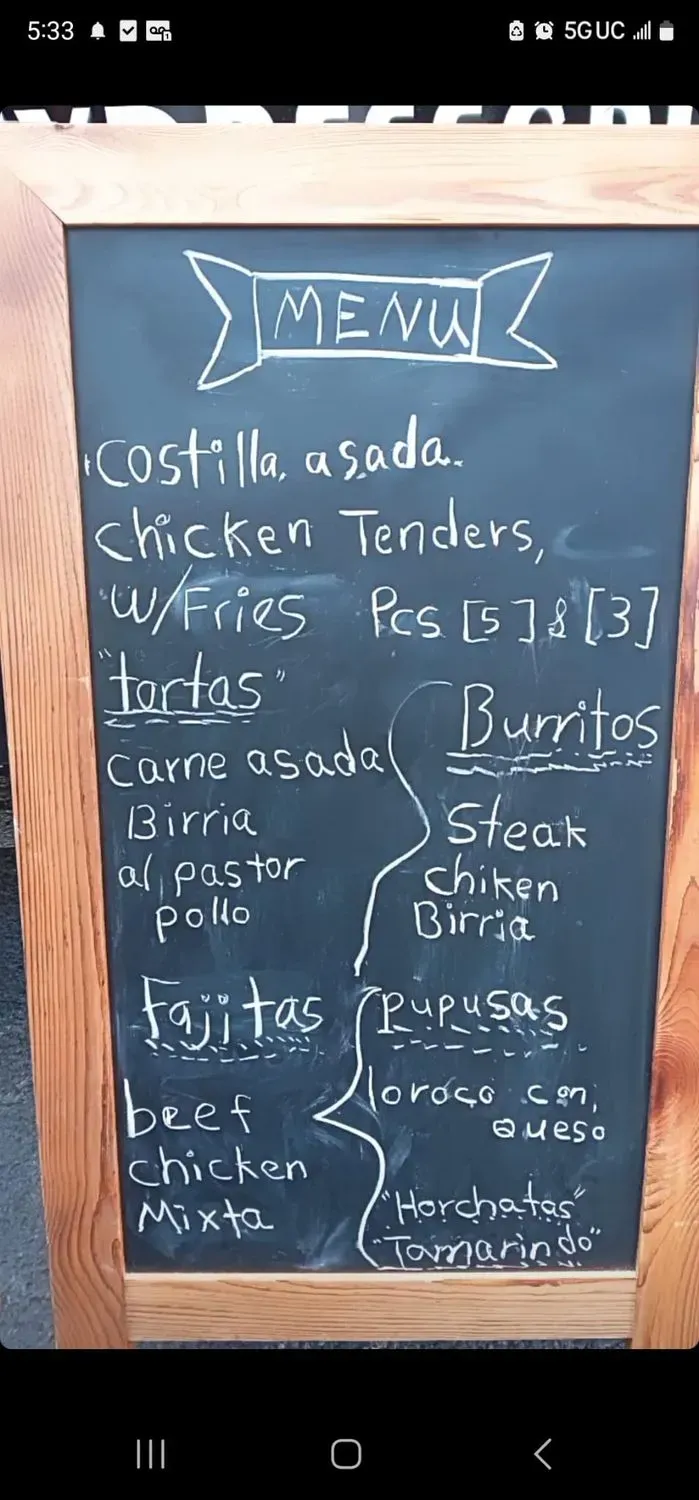 5:33
5G UC
MENU
Costilla. asada.
Chicken Tenders,
W/Fries Pcs [5] & [3]
"tortas"
carne asada
Birria
al pastor
pollo
Burritos
Steak
Chiken
Birria
Fajitas
beef
chicken
Mixta
pupusas
loroco con,
queso
"Horchatas"
"Tamarindo"